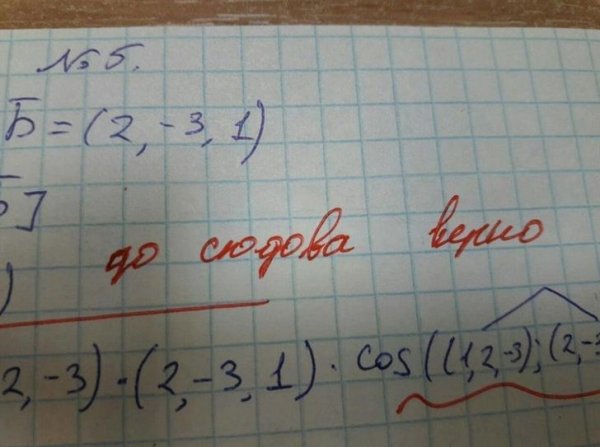 №5.
Б = (2, -3, 1)
Б]
до сюдова верно
)
2, -3) · (2, -3, 1) · cos((1, 2, -3); (2, -3